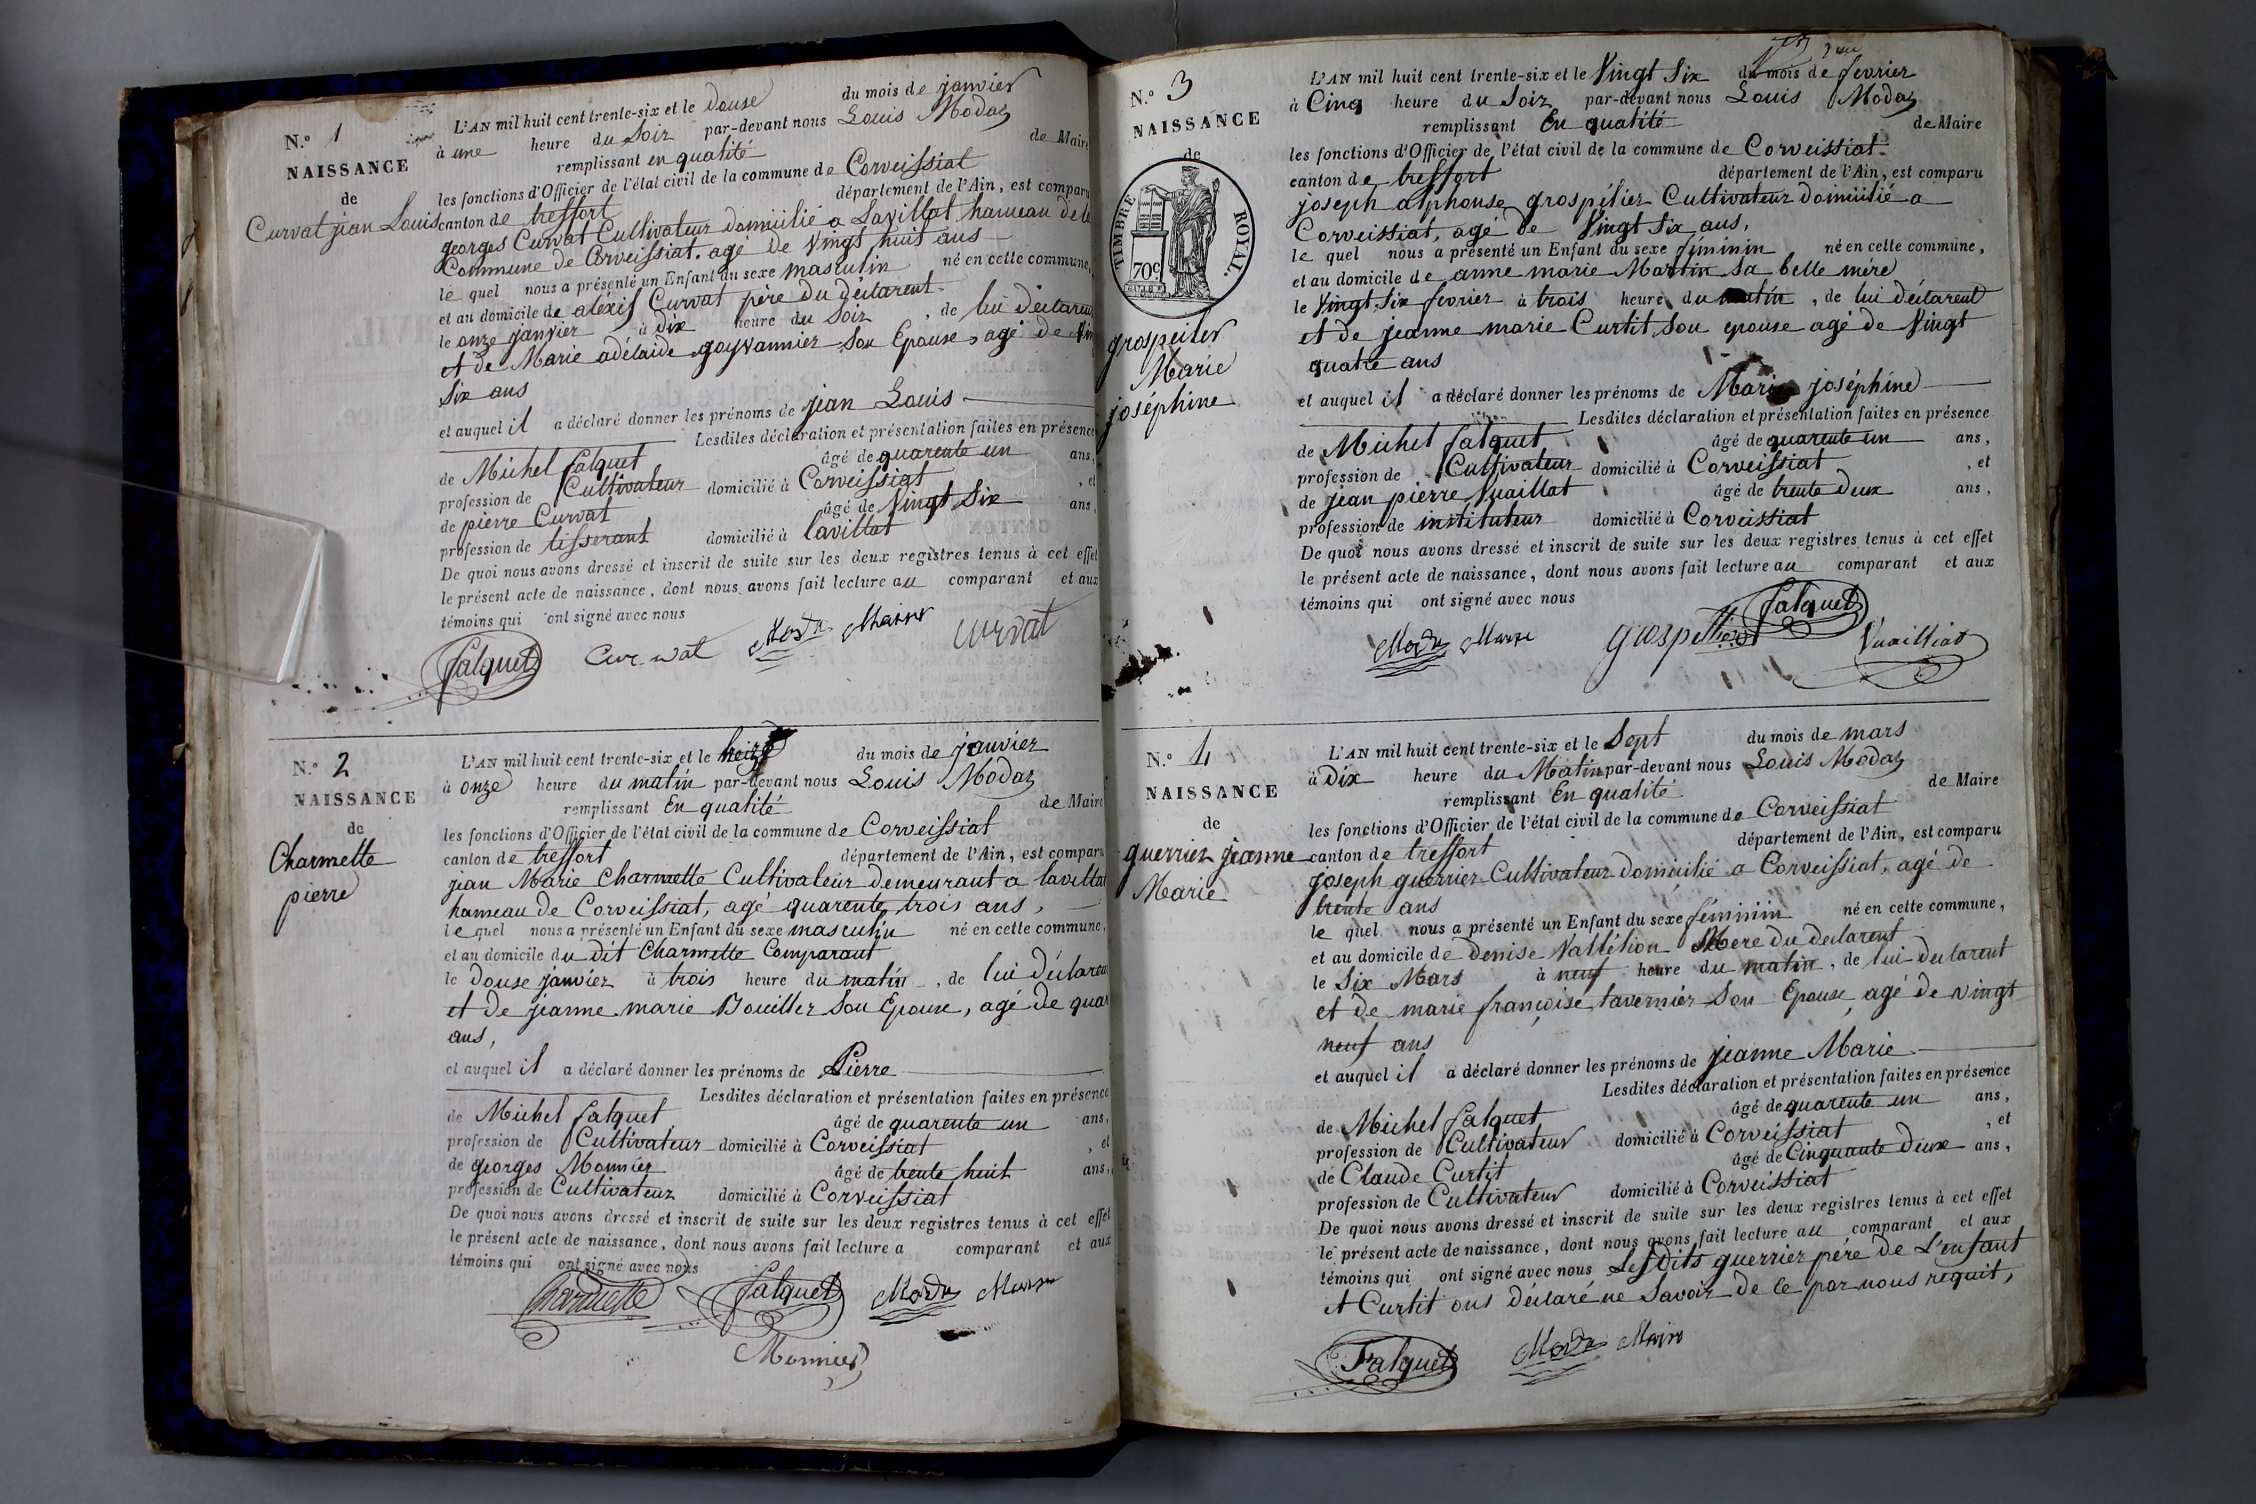 N.o 1
NAISSANCE
de
Curvat jean Louis
L'AN mil huit cent trente-six et le douse du mois de janvier
à une heure du Soir par-devant nous Louis Modas
remplissant en qualité de Maire
les fonctions d'Officier de l'état civil de la commune de Corveissiat
canton de treffort département de l'Ain, est comparu
georges Curvat Cultivateur domicilié a Lavillat hameau de la
Commune de Corveissiat. agé de Vingt huit ans
le quel nous a présenté un Enfant du sexe masculin né en cette commune,
et au domicile de aléxis Curvat père du déclarent
le onze janvier à dix heure du Soir, de lui déclarent
et de Marie adélaide goyvannier Son Epouse, agé de Vin
Six ans
et auquel il a déclaré donner les prénoms de jean Louis
Lesdites déclaration et présentation faites en présence
de Michel falquet âgé de quarente un ans,
profession de Cultivateur domicilié à Corveissiat, et
de pierre Curvat âgé de Vingt Six ans,
profession de tisserant domicilié à lavillat
De quoi nous avons dressé et inscrit de suite sur les deux registres tenus à cet effet
le présent acte de naissance, dont nous avons fait lecture au comparant et aux
témoins qui ont signé avec nous
falquet Cur-vat Modas Maire curvat
N.o 2
NAISSANCE
de
Charmette
pierre
L'AN mil huit cent trente-six et le treize du mois de janvier
à onze heure du matin par-devant nous Louis Modas
remplissant En qualité de Maire
les fonctions d'Officier de l'état civil de la commune de Corveissiat
canton de treffort département de l'Ain, est comparu
jean Marie Charmette Cultivateur demeurant a lavillat
hameau de Corveissiat, agé quarente trois ans,
le quel nous a présenté un Enfant du sexe masculin né en cette commune,
et au domicile du dit Charmette Comparant
le douse janvier à trois heure du matin, de lui déclarent
et de jeanne marie Bouiller Son Epouse, agé de quar
ans,
et auquel il a déclaré donner les prénoms de Pierre
Lesdites déclaration et présentation faites en présence
de Michel falquet âgé de quarente un ans,
profession de Cultivateur domicilié à Corveissiat, et
de georges Monnier âgé de trente huit ans,
profession de Cultivateur domicilié à Corveissiat
De quoi nous avons dressé et inscrit de suite sur les deux registres tenus à cet effet
le présent acte de naissance, dont nous avons fait lecture a comparant et aux
témoins qui ont signé avec nous
Charmette falquet Modas Maire
Monnier
N.o 3
NAISSANCE
de
TIMBRE ROYAL.
70c
grospeiler
Marie
joséphine
L'AN mil huit cent trente-six et le Vingt Six du mois de fevrier
à Cinq heure du Soir par-devant nous Louis Modas
remplissant En qualité de Maire
les fonctions d'Officier de l'état civil de la commune de Corveissiat
canton de treffort département de l'Ain, est comparu
joseph alphonse grospélier Cultivateur domicilié a
Corveissiat, agé de Vingt Six ans,
le quel nous a présenté un Enfant du sexe féminin né en cette commune,
et au domicile de anne marie Martin Sa belle mére
le Vingt Six fevrier à trois heure du matin, de lui déclarent
et de jeanne marie Curtit Son epouse agé de Vingt
quatre ans
et auquel il a déclaré donner les prénoms de Marie joséphine
Lesdites déclaration et présentation faites en présence
de Michel falquet âgé de quarente un ans,
profession de Cultivateur domicilié à Corveissiat, et
de jean pierre Vuaillat âgé de trente deux ans,
profession de instituteur domicilié à Corveissiat
De quoi nous avons dressé et inscrit de suite sur les deux registres tenus à cet effet
le présent acte de naissance, dont nous avons fait lecture au comparant et aux
témoins qui ont signé avec nous
falquet
Modas Maire grospellier Vuailliat
N.o 4
NAISSANCE
de
guerrier jeanne
Marie
L'AN mil huit cent trente-six et le Sept du mois de mars
à Dix heure du Matin par-devant nous Louis Modas
remplissant En qualité de Maire
les fonctions d'Officier de l'état civil de la commune de Corveissiat
canton de treffort département de l'Ain, est comparu
joseph guerrier Cultivateur domicilié a Corveissiat, agé de
trente ans
le quel nous a présenté un Enfant du sexe féminin né en cette commune,
et au domicile de Denise Vallétion Mere du declarent
le Six Mars à neuf heure du matin, de lui declarent
et de marie françoise tavernier Son Epouse, agé de vingt
neuf ans
et auquel il a déclaré donner les prénoms de jeanne Marie
Lesdites déclaration et présentation faites en présence
de Michel falquet âgé de quarente un ans,
profession de Cultivateur domicilié à Corveissiat, et
de Claude Curtit âgé de Cinquante Deux ans,
profession de Cultivateur domicilié à Corveissiat
De quoi nous avons dressé et inscrit de suite sur les deux registres tenus à cet effet
le présent acte de naissance, dont nous avons fait lecture au comparant et aux
témoins qui ont signé avec nous Lesdits guerrier père de L'enfant
et Curtit ont déclaré ne Savoir de ce par nous requit,
Falquet Modas Maire